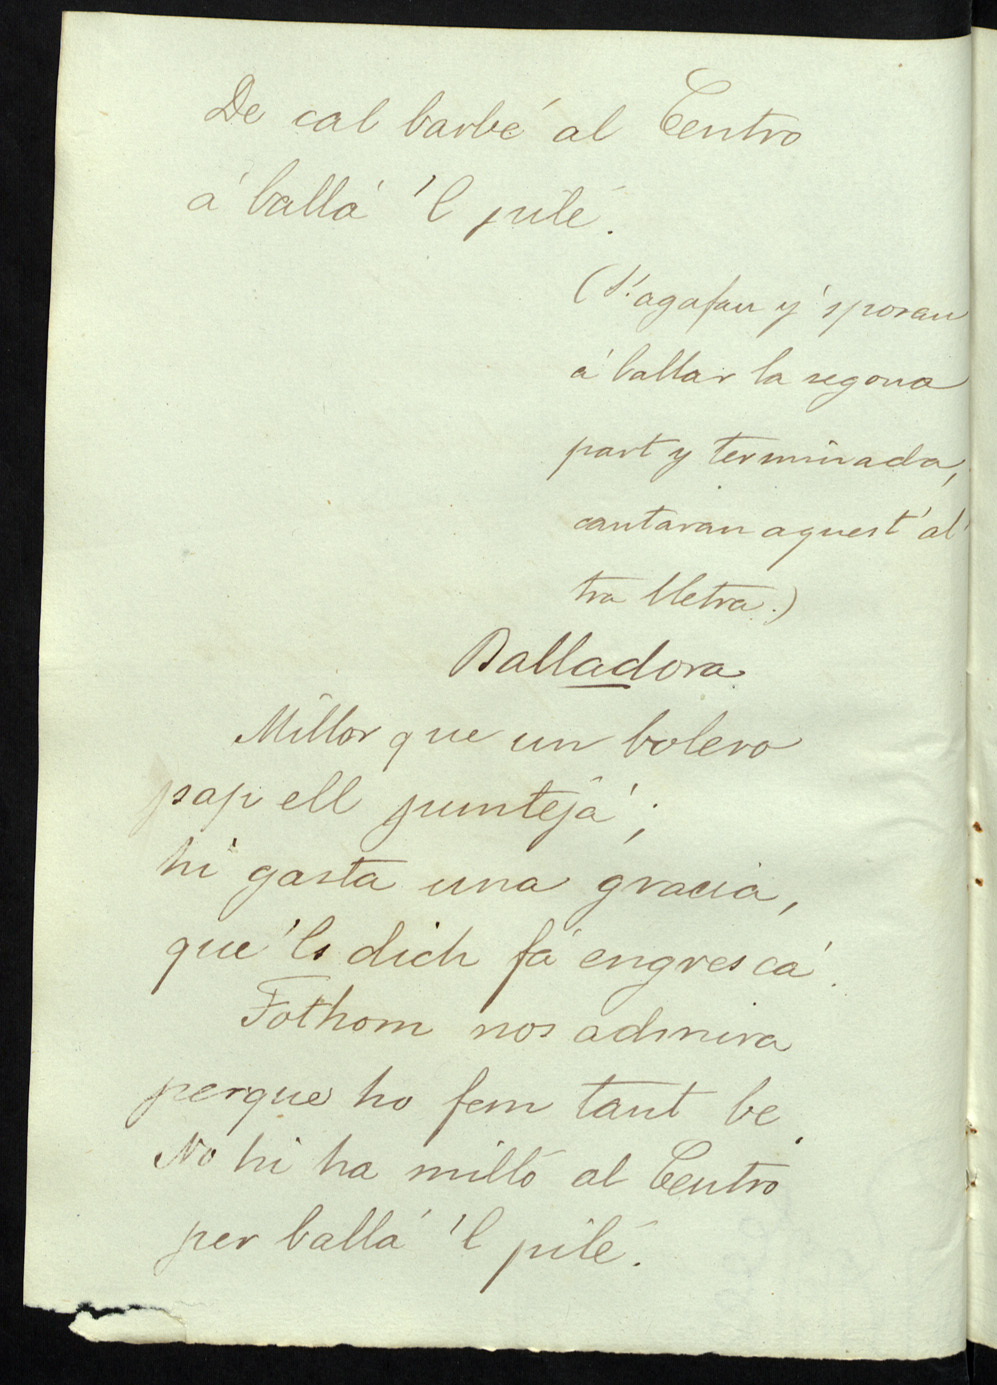 De cal barbé al Centro
á ballá 'l pilé.
(S'agafan y 's posan
á ballar la segona
part y terminada,
cantaran aquest' al
tra lletra.)
Balladora
Millor que un bolero
sap ell puntejá;
hi gasta una gracia,
que 'ls dich fá engrescá.
Tothom nos admira
perque ho fem tant be.
No hi ha milló al Centro
per ballá 'l pilé.